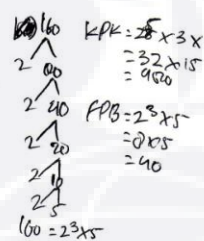 160
2 80
2 40
2 20
2 10
2 5
160 = 2³×5
KPK = 2⁵ × 3 ×
= 32 × 15
= 480
FPB = 2³×5
= 8×5
= 40